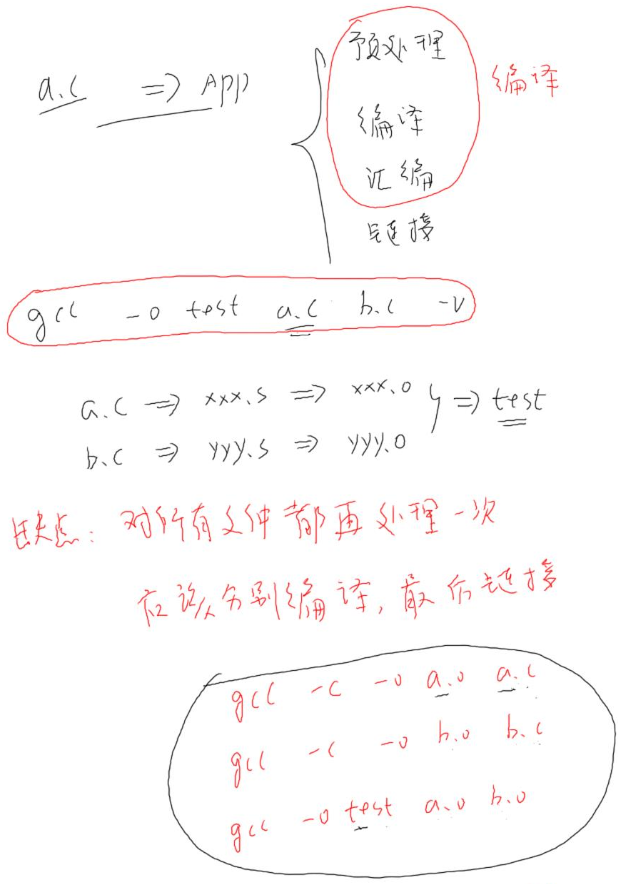 预处理
a.c => APP
编译
编译
汇编
链接
gcc -o test a.c b.c -v
a.c => xxx.s => xxx.o } => test
b.c => yyy.s => yyy.o
缺点: 对所有文件都再处理一次
应该分别编译, 最后链接
gcc -c -o a.o a.c
gcc -c -o b.o b.c
gcc -o test a.o b.o